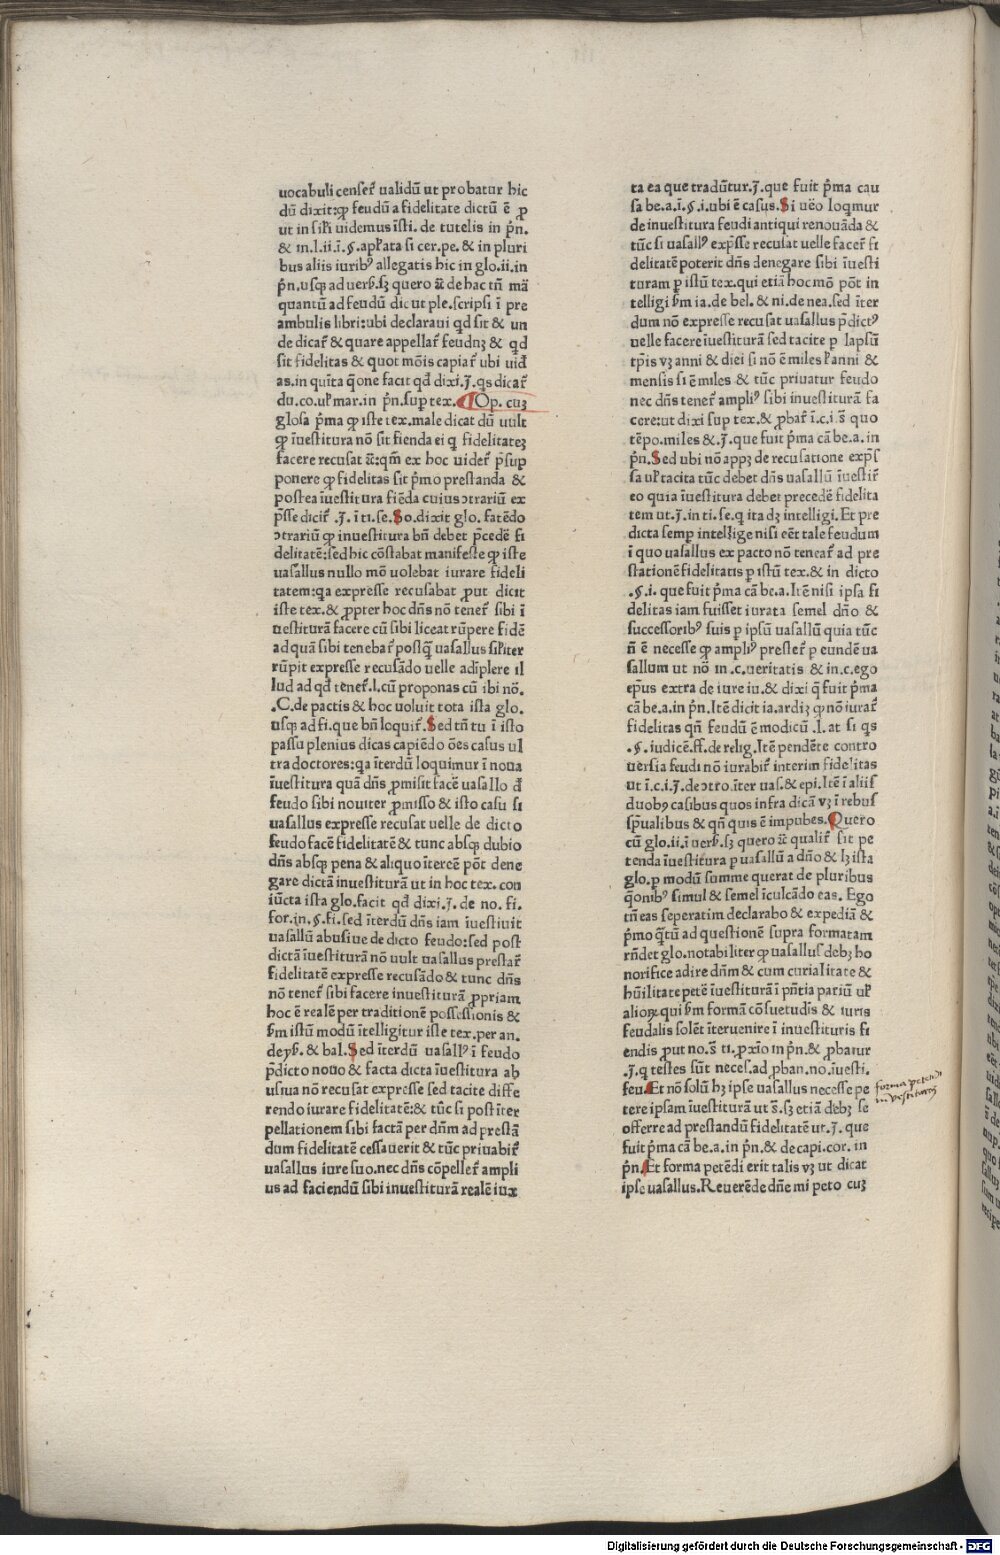 uocabuli censet᷑ ualidū ut probatur hic
dū dixit:ꝙ feudū a fidelitate dictū ē ꝓ
ut in sil̃i uidemus ĩsti. de tutelis in p̃n.
& in.l.ii.ĩ.§.apl̃ata si cer.pe. & in pluri
bus aliis iuribꝰ allegatis hic in glo.ii.in
p̃n.usqꝫ ad uers̃.sꝫ quero &̃ de hac tñ mã
quantū ad feudū dic ut ple.scripsi ĩ pre
ambulis libri:ubi declaraui qd̃ sit & un
de dicat᷑ & quare appellat᷑ feudūꝫ & qd̃
sit fidelitas & quot mõis capiat᷑ ubi uid̃
as.in quīta q̃one facit qd̃ dixi.J̃.qs dicat᷑
du.co.ul̃ mar.in p̃n.sup tex.¶Op. cuꝫ
glosa p̃ma ꝙ iste tex.male dicat dū uult
ꝙ ĩuestitura nõ sit fienda ei q fidelitateꝫ
facere recusat &̃:qm̃ ex hoc uidet᷑ p̃sup
ponere ꝙ fidelitas sit p̃mo prestanda &
postea ĩuestitura fiēda cuius ↄtrariū ex
p̃sse dicit᷑ .J̃. ĩ ti.se.So.dixit glo. fatēdo
ↄtrariū ꝙ inuestitura bñ debet p̃cedē fi
delitatē:sed hic cõstabat manifeste ꝙ iste
uasallus nullo mõ uolebat iurare fideli
tatem:qa expresse recusabat ꝓut dicit
iste tex.& ꝓpter hoc dñs nõ tenet᷑ sibi ĩ
uestiturã facere cū sibi liceat rūpere fidē
ad quã sibi tenebat᷑ postq̃ uasallus sil̃iter
rūpit expresse recusãdo uelle adĩplere il
lud ad qd̃ tenet᷑.l.cū proponas cū ibi nõ.
.C.de pactis & hoc uoluit tota ista glo.
usqꝫ ad fi.que bñ loquit᷑.Sed tñ tu ĩ isto
passu plenius dicas capiēdo ões casus ul
tra doctores:qa ĩterdū loquimur ĩ noua
ĩuestitura quã dñs ꝓmisit facē uasallo d̃
feudo sibi nouiter ꝓmisso & isto casu si
uasallus expresse recusat uelle de dicto
feudo facē fidelitatē & tunc absqꝫ dubio
dñs absqꝫ pena & aliquo ĩtercē põt dene
gare dictã inuestiturã ut in hoc tex. con
iūcta ista glo.facit qd̃ dixi.J̃. de no. fi.
for.in.§.fi.sed ĩterdū dñs iam ĩuestiuit
uasallū abusiue de dicto feudo:sed post
dictã ĩuestiturã nõ uult uasallus prestar̃
fidelitatē expresse recusãdo & tunc dñs
nõ tenet᷑ sibi facere inuestiturã ꝓpriam
hoc ē realē per traditionē possessionis &
s̃m istū modū ĩtelligitur iste tex.per an.
de ys̃. & bal.Sed ĩterdū uasallꝰ ĩ feudo
p̃dicto nouo & facta dicta ĩuestitura ab
usiua nõ recusat expresse sed tacite diffe
rendo iurare fidelitatē:& tūc si post ĩter
pellationem sibi factã per dñm ad prestã
dum fidelitatē cessauerit & tūc priuabit᷑
uasallus iure suo.nec dñs cõpellet᷑ ampli
us ad faciendū sibi inuestiturã realē iux
ta ea que tradūtur.J̃.que fuit p̃ma cau
sa be.a.ĩ.§.i.ubi ē casus.Si uēo loqmur
de inuestitura feudi antiqui renouãda &
tūc si uasallꝰ exp̃sse recusat uelle facer̃ fi
delitatē poterit dñs denegare sibi ĩuesti
turam p istū tex.qui etiã hoc mõ põt in
telligi s̃m ia.de bel. & ni.de nea.sed ĩter
dum nõ expresse recusat uasallus p̃dictꝰ
uelle facere ĩuestiturã sed tacite p lapsū
tp̃is uꝫ anni & diei si nõ ē miles l̃ anni &
mensis si ē miles & tūc priuatur feudo
nec dñs tenet᷑ ampliꝰ sibi inuestiturã fa
cere:ut dixi sup tex.& ꝓbat᷑ ĩ.c.i.s̃ quo
tēpo.miles &.J̃.que fuit p̃ma cã be.a.in
p̃n.Sed ubi nõ appꝫ de recusatione exp̃s
sa ul̃ tacita tūc debet dñs uasallū ĩuestir̃
eo quia ĩuestitura debet precedē fidelita
tem ut.J̃.in ti.se.q ita dꝫ intelligi.Et pre
dicta semp intellige nisi eēt tale feudum
ĩ quo uasallus ex pacto nõ teneat᷑ ad pre
stationē fidelitatis p istū tex.& in dicto
.§.i. que fuit p̃ma cã be.a.Itē nisi ipsa fi
delitas iam fuisset iurata semel dño &
successoribꝰ suis p ipsū uasallū quia tūc
ñ ē necesse ꝙ ampliꝰ prestet᷑ p eundē ua
sallum ut nõ in .c.ueritatis & in.c.ego
ep̃us extra de iure iu.& dixi q̃ fuit p̃ma
cã be.a.in p̃n.Itē dicit ia.ardiꝫ ꝙ nõ iurat᷑
fidelitas qñ feudū ē modicū .l. at si qs
.§.iudicē.ff.de relig.Itē pendēte contro
uersia feudi nõ iurabit᷑ interim fidelitas
ut ĩ.c.i.J̃.de ↄtro.ĩter uas.& epi.Itē ĩ aliis
duobꝰ casibus quos infra dicã uꝫ ĩ rebus
sp̃ualibus & qñ quis ē impubes.Quero
cū glo.ii.ĩ uers̃.sꝫ quero &̃ qualit᷑ sit pe
tenda ĩuestitura p uasallū a dño & lꝫ ista
glo.p modū summe querat de pluribus
q̃onibꝰ simul & semel ĩculcãdo eas. Ego
tñ eas seperatim declarabo & expediã &
p̃mo q̃tū ad questionē supra formatam
rñdet glo.notabiliter ꝙ uasallus debꝫ ho
norifice adire dñm & cum curialitate &
hūilitate petē ĩuestiturã ĩ p̃ntia pariū ul̃
alioꝝ qui s̃m formã cõsuetudīs & iuris
feudalis solēt ĩteruenire ĩ inuestituris fi
endis ꝓut no.s̃ ti.ꝓxĩo in p̃n.& ꝓbatur
.J̃.q testes sūt neces.ad ꝓban.no.ĩuesti.
feu.Et nõ solū hꝫ ipse uasallus necesse pe
tere ipsam ĩuestiturã ut s̃.sꝫ etiã debꝫ se
offerre ad prestandū fidelitatē ut.J̃. que
fuit p̃ma cã be.a.in p̃n.& de capi.cor. in
p̃n.Et forma petēdi erit talis uꝫ ut dicat
ipse uasallus.Reuerēde dñe mi peto cuꝫ
forma petendi
investituras
Digitalisierung gefördert durch die Deutsche Forschungsgemeinschaft - DFG